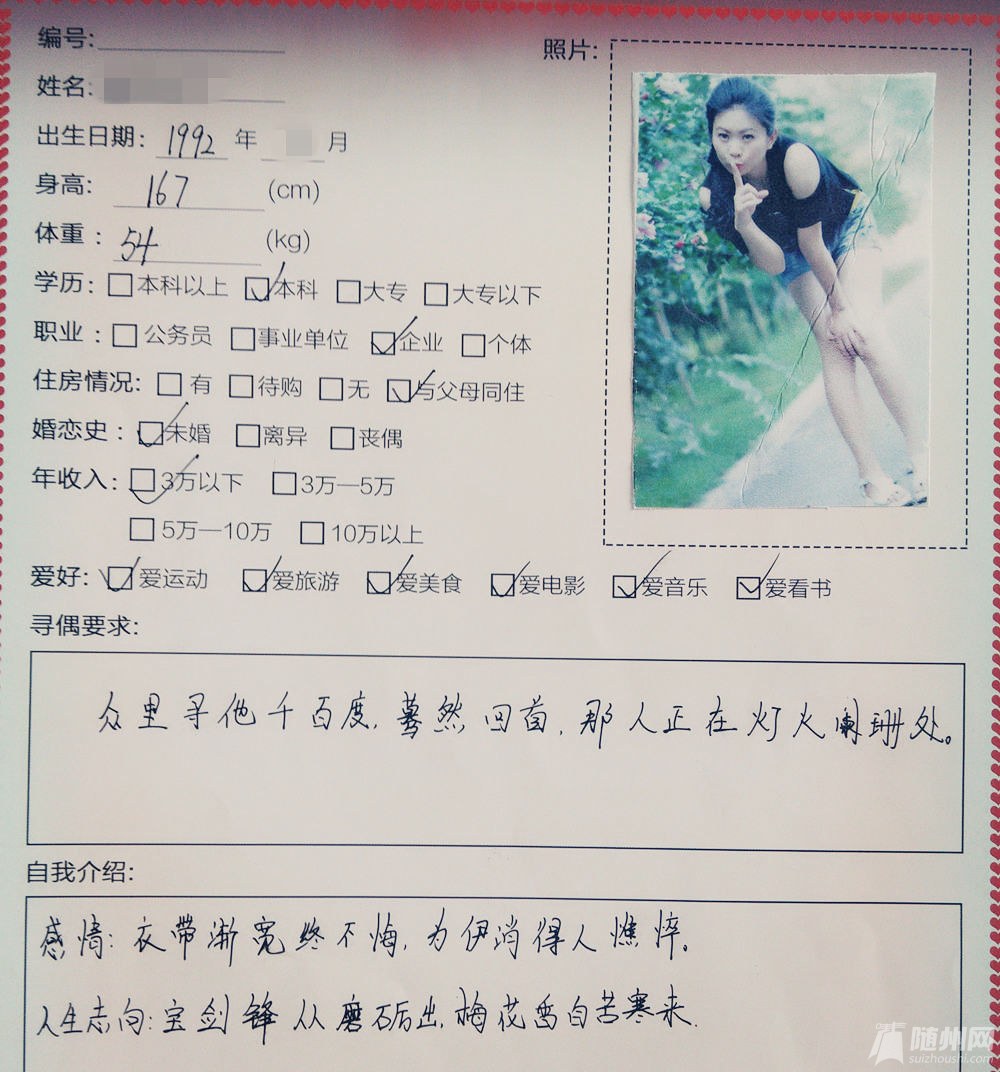 编号:
照片:
姓名:
出生日期: 1992 年 月
身高: 167 (cm)
体重: 54 (kg)
学历: 本科以上 本科 大专 大专以下
职业: 公务员 事业单位 企业 个体
住房情况: 有 待购 无 与父母同住
婚恋史: 未婚 离异 丧偶
年收入: 3万以下 3万—5万
5万—10万 10万以上
爱好: 爱运动 爱旅游 爱美食 爱电影 爱音乐 爱看书
寻偶要求:
众里寻他千百度,蓦然回首,那人正在灯火阑珊处。
自我介绍:
感情:衣带渐宽终不悔,为伊消得人憔悴。
人生志向:宝剑锋从磨砺出,梅花香自苦寒来.
随州网
suizhoushi.com